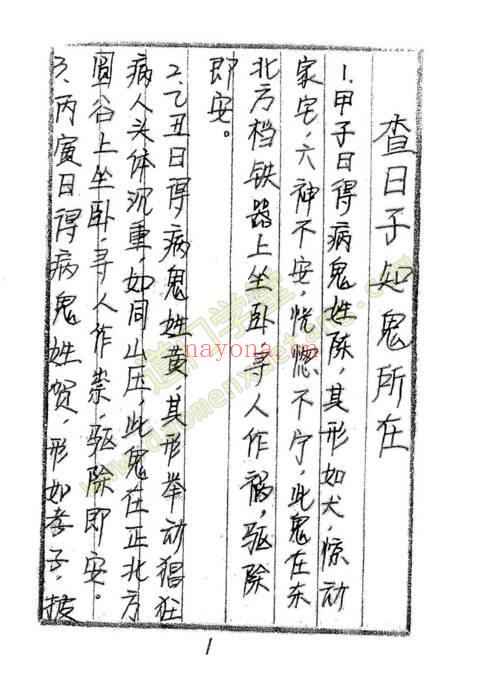 查日子知鬼所在
1.甲子日得病鬼姓陈，其形如犬，惊动
家宅，六神不安，恍惚不宁，此鬼在东
北方档铁器上坐卧寻人作祸，驱除
即安。
2.乙丑日得病鬼姓黄，其形举动猖狂
病人头体沉重，如同山压，此鬼在正北方
圆谷上坐卧，寻人作祟，驱除即安。
3、丙寅日得病鬼姓贺，形如孝子，披
1
道门学堂
nayona.cn